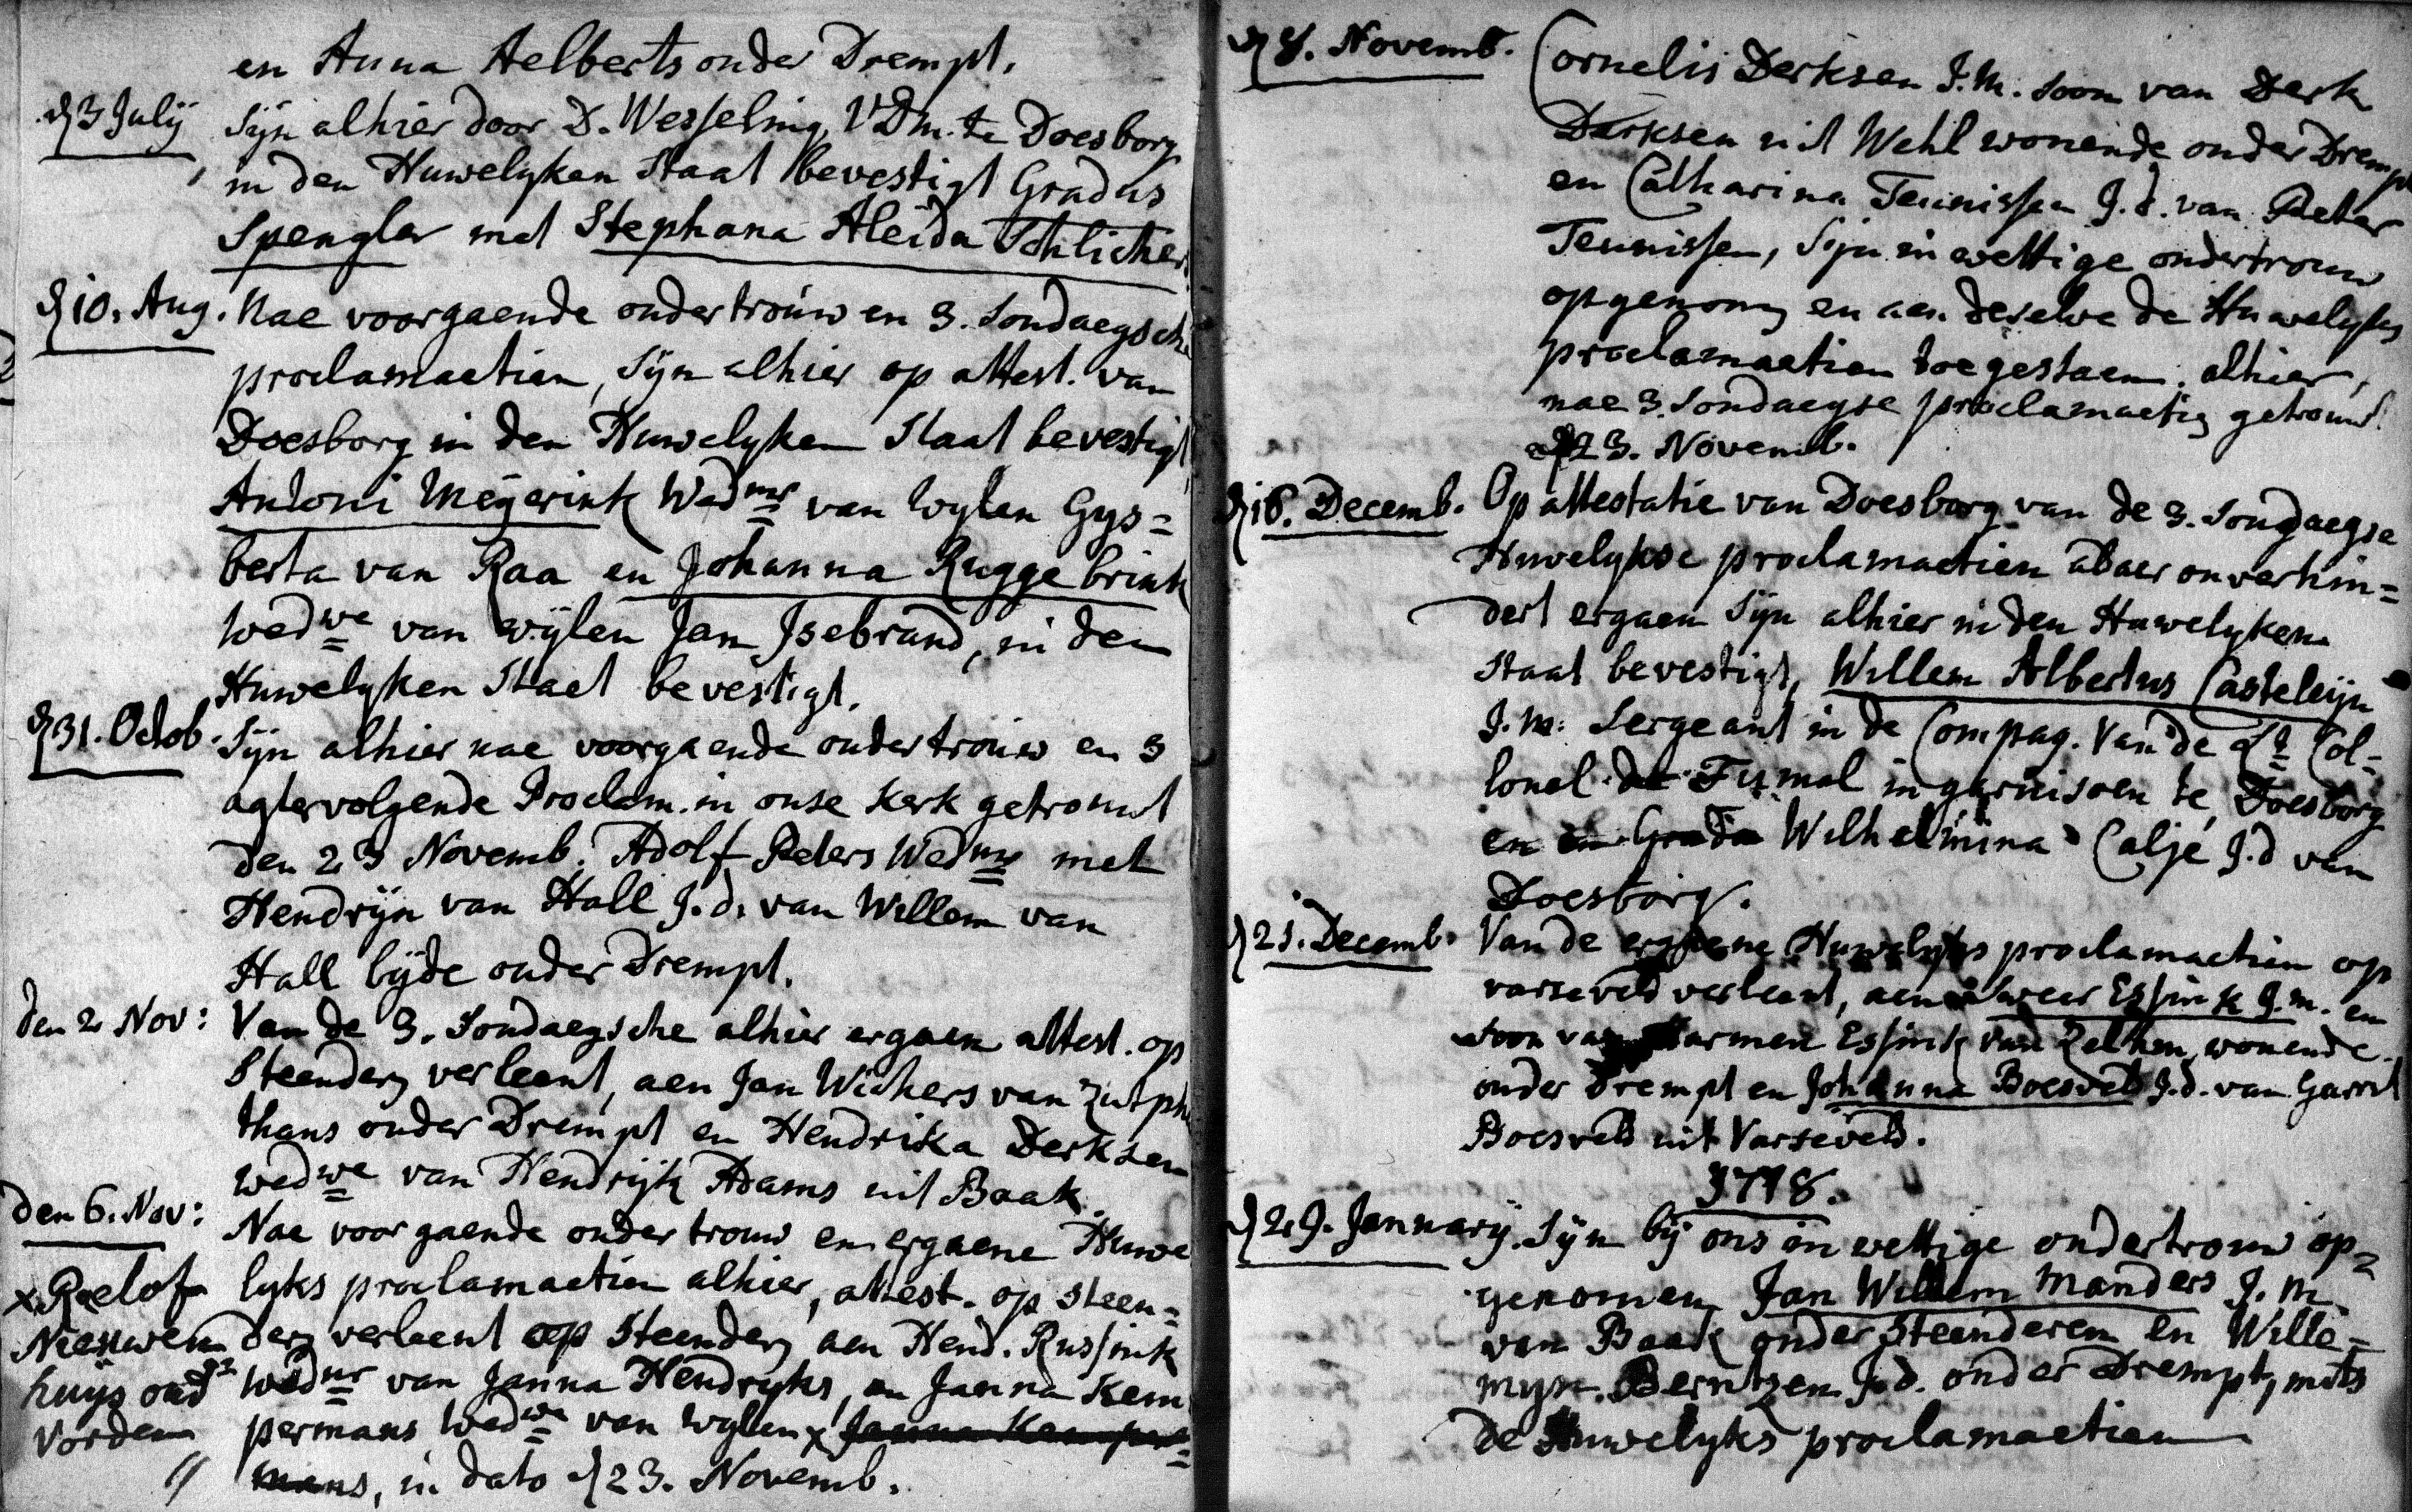 en Anna Aelberts onder Drempt.
d 3 Julÿ Sÿn alhier door D. Wesseling, VDm. te Doesborg
in den Huwelyken Staat bevestigt Gradus
Spengler met Stephana Aleida Schlicher
d 10. Aug. Nae voorgaende ondertrouw en 3. Sondaegsche
proclamaetien, Sÿn alhier op attest. van
Doesborg in den Huwelyken Staat bevestigt
Antoni Megerink Wednr van Wylen Gys=
berta van Raa en Johanna Ruggebrink
Wedwe van wÿlen Jan Jsebrand, in den
Huwelyken Staet bevestigt.
d 31. Octob. Sÿn alhier nae voorgaende ondertrouw en 3
agtervolgende Proclam. in onse Kerk getrouwt
den 23 Novemb. Adolf Peters Wednr met
Hendrÿn van Hall J.d. van Willem van
Hall bÿde onder Drempt.
den 2 Nov: Van de 3. Sondaegsche alhier ergaen attest. op
Steenderen verleent, aen Jan Wichers van Zutphen
thans onder Drempt en Hendrika Derksen
wedwe van Hendrÿk Adams uit Baak.
den 6. Nov: Nae voorgaende ondertrouw en ergaene Huwe
lyks proclamaetien alhier, attest. op Steen=
deren verleent op Steenderen aen Hend. Russink
Wednr van Janna Hendryks, en Janna Kem
permans Wedwe van Wylen x Janna Kemper=
mans, in dato d 23. Novemb.
x Roelof
Nieuwen
huÿs ond
Vorden
d 8. Novemb. Cornelis Derksen J.M. soon van Derk
Derksen uit Wehl wonende onder Drempt
en Catharina Teunissen J.d. van Peter
Teunissen, Sÿn in wettige ondertrouw
opgenomen en aen deselve de Huwelykse
proclamaetien toegestaen. alhier,
nae 3. Sondaegse proclamaetien getrouwt.
d 23. Novemb.
d 16. Decemb. Op attestatie van Doesborg van de 3. Sondaegse
Huwelykse proclamaetien aldaer onverhin=
dert ergaen Sÿn alhier in den Huwelyken
Staat bevestigt, Willem Albertus Casteleÿn
J.M. Sergeant in de Compag. Van de Lt Col=
lonel de Tujmal in garnisoen te Doesborg
en en Grada Wilhelmina Caljé J.d van
Doesborg.
d 21. Decemb. Van de ergaene Huwelyks proclamaetien op
varseveld verleent, aen Sweer Essink J.m. en
soon van Harmen Essink van Zelhem, wonende
onder Drempt en Johanna Boesveld J.d. van Garrit
Boesveld uit Varseveld.
1718.
d 29. Januarÿ. Sÿn bÿ ons in wettige ondertrouw op=
genomen Jan Willem Manders J.M.
van Baak onder Steenderen en Wille=
mÿn Berntzen J.d. onder Drempt, mits
de Huwelyks proclamaetien